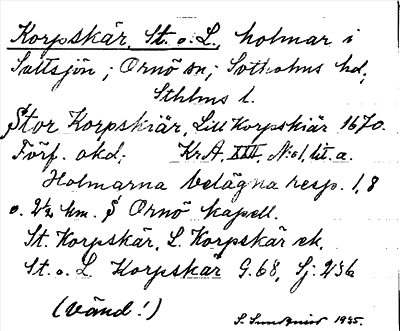 Korpskär, St. o. L., holmar i
Saltsjön; Ornö sn; Sotholms hd,
Sthlms l.
Stor Korpskiär, Lill Korpskiär 1670.
Förf. okd; Kr A. XVII, N:o 1, lit. a.
Holmarna belägna resp. 1,8
o. 2½ km. S Ornö kapell.
St. Korpskär, L. Korpskär ek.
St. o. L Korpskär G. 68, Sj.
(vänd!)
1935.